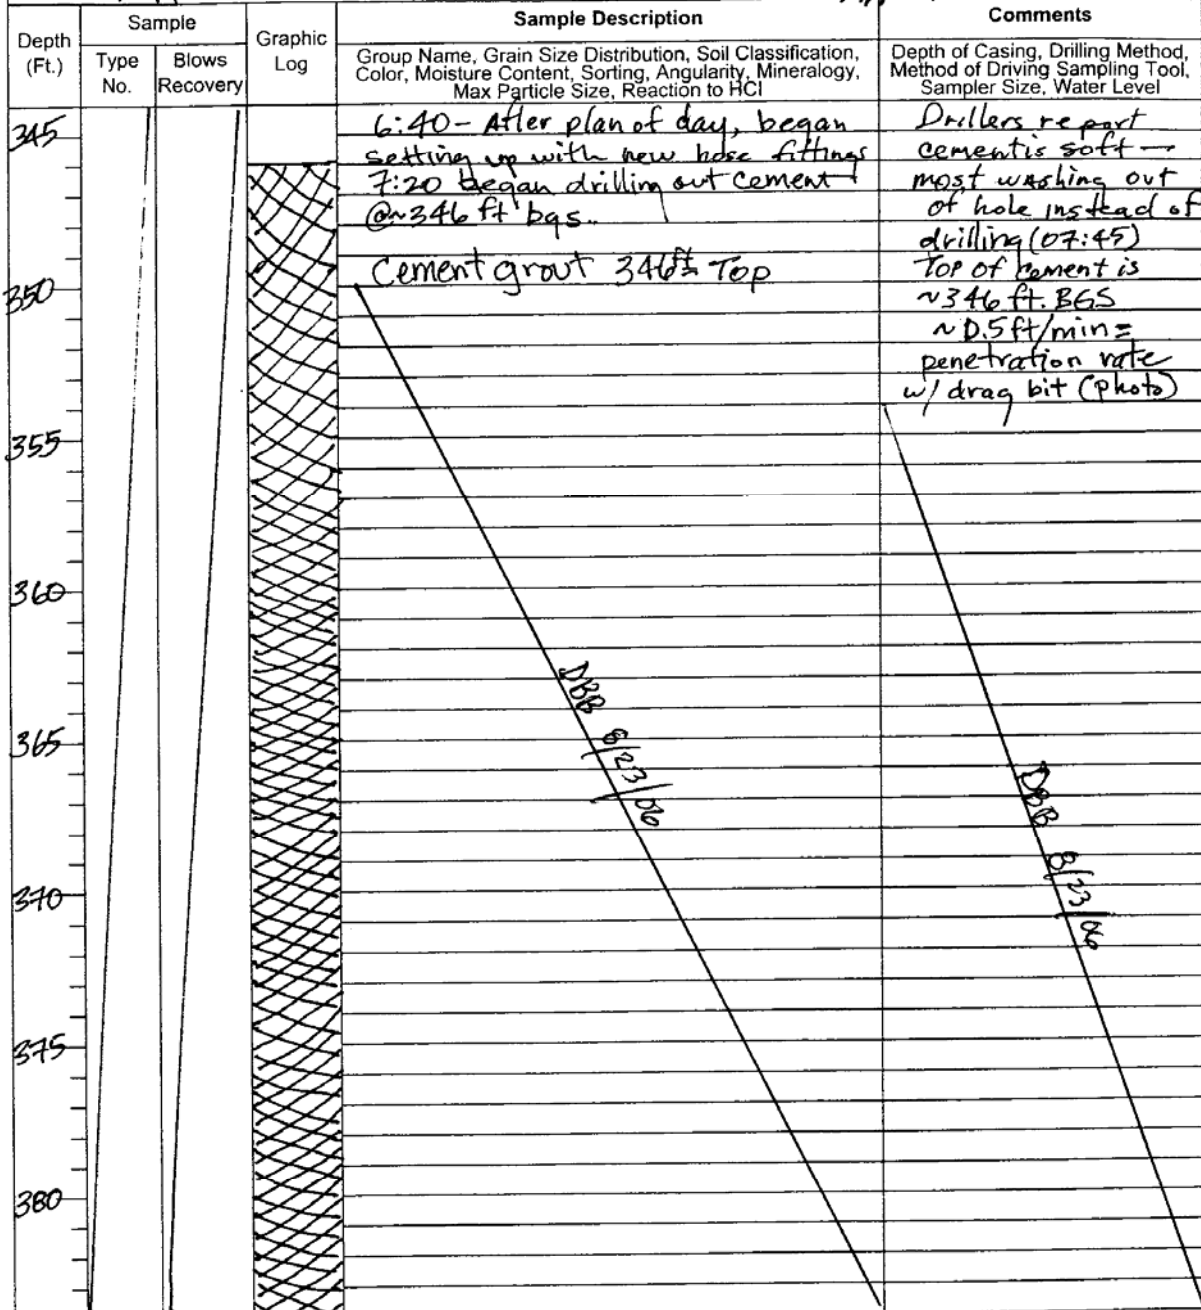 Depth
(Ft.)
Sample
Type
No.
Blows
Recovery
Graphic
Log
Sample Description
Group Name, Grain Size Distribution, Soil Classification,
Color, Moisture Content, Sorting, Angularity, Mineralogy,
Max Particle Size, Reaction to HCl
Comments
Depth of Casing, Drilling Method,
Method of Driving Sampling Tool,
Sampler Size, Water Level
345
350
355
360
365
370
375
380
6:40 - After plan of day, began
setting up with new hose fittings
7:20 began drilling out cement
@~346 ft bgs.
Cement grout 346ft Top
DBB 8/23/06
Drillers report
cement is soft —
most washing out
of hole instead of
drilling (07:45)
Top of cement is
~346 ft. BGS
~0.5ft/min =
penetration rate
w/ drag bit (photo)
DBB 8/23/06